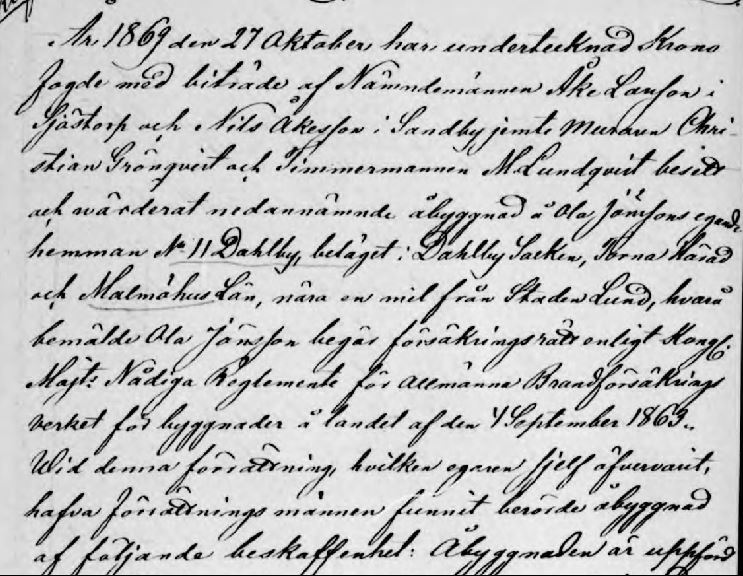 År 1869 den 27 Oktober har undertecknad Krono
fogde med biträde af Nämndemännen Åke Larsson i
Sjöstorp och Nils Åkesson i Sandby jemte Muraren Chri-
stian Grönqvist och Timmermannen M Lundqvist besett
och wärderat nedannämnde åbyggnad å Ola Jönssons egande
hemman No 11 Dahlby, beläget i Dahlby Socken, Torna Härad
och Malmöhus Län, nära en mil från Staden Lund, hvarå
bemälde Ola Jönsson begär försäkringsrätt enligt Kongl.
Majts Nådiga Reglemente för Allmänna Brandförsäkrings
verket för byggnader å landet af den 4 September 1863.
Wid denna förrättning, hvilken egaren sjelf öfvervarit,
hafva förrättningsmännen funnit berörde åbyggnad
af följande beskaffenhet: Åbyggnaden är uppförd